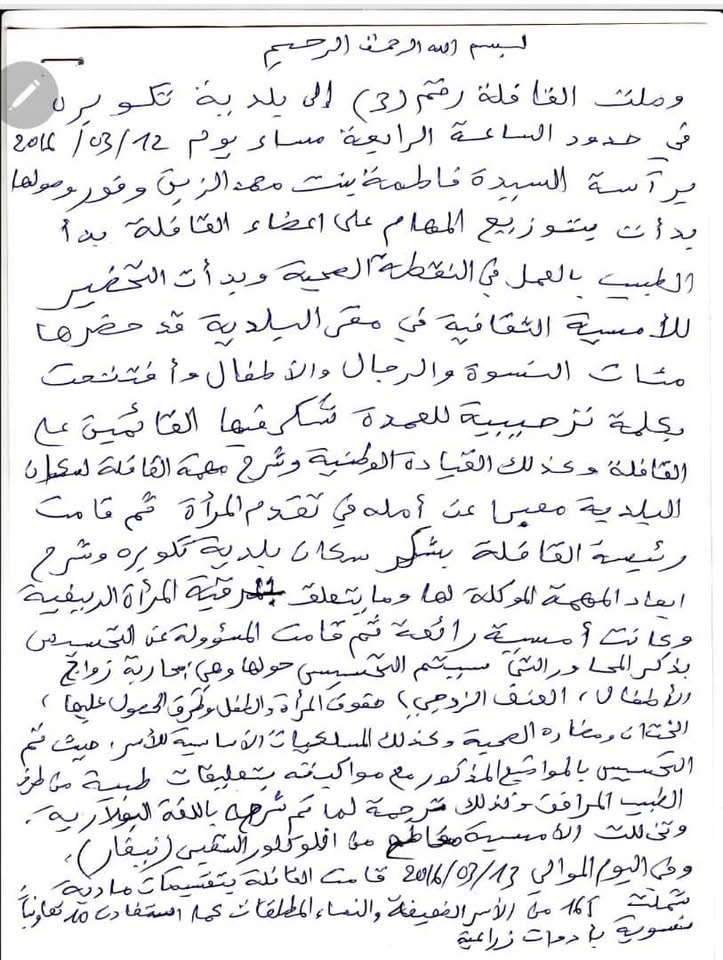 بسم الله الرحمن الرحيم
وصلت القافلة رقم (3) إلى بلدية تكوبره
في حدود الساعة الرابعة مساء يوم 12/03/2016
برآسة السيدة فاطمة بنت محمد الزين وفور وصولها
بدأت بتوزيع المهام على اعضاء القافلة بدأ
الطبيب بالعمل في النقطة الصحية وبدأت التحضير
للأمسية الثقافية في مقر البلدية قد حضرها
مئات النسوة والرجال والاطفال وأفتتحت
بكلمة ترحيبية للعمدة شكر فيها القائمين على
القافلة وكذلك القيادة الوطنية وشرح مهمة القافلة لسكان
البلدية معبرا عن أمله في تقدم المرأة ثم قامت
رئيسة القافلة بشكر سكان بلدية تكوبره وشرح
ابعاد المهمة الموكلة لها وما يتعلق بترقية المرأة الريفية
وكانت أمسية رائعة ثم قامت المسؤولة عن التحسيس
بذكر المحاور التي سيتم التحسيس حولها وهي: محاربة زواج
الأطفال، العنف الزوجي، حقوق المرأة والطفل وطرق الحصول عليها،
الختان ومضاره الصحية وكذلك المسلكيات الأساسية للأسر، حيث تم
التحسيس بالمواضيع المذكور مع مواكبته بتعليقات طبية من طرف
الطبيب المرافق وكذلك ترجمة لما تم شرحه باللغة البولارية.
وتخللت الأمسية مقاطع من افلوكلور الشعبي (نيفار)،
وفي اليوم الموالي 13/03/2016 قامت القافلة بتقسيمات مادية
شملت 161 من الأسر الضعيفة والنساء المطلقات كما استفادت 10 تعاونيات
نسوية بأدوات زراعية